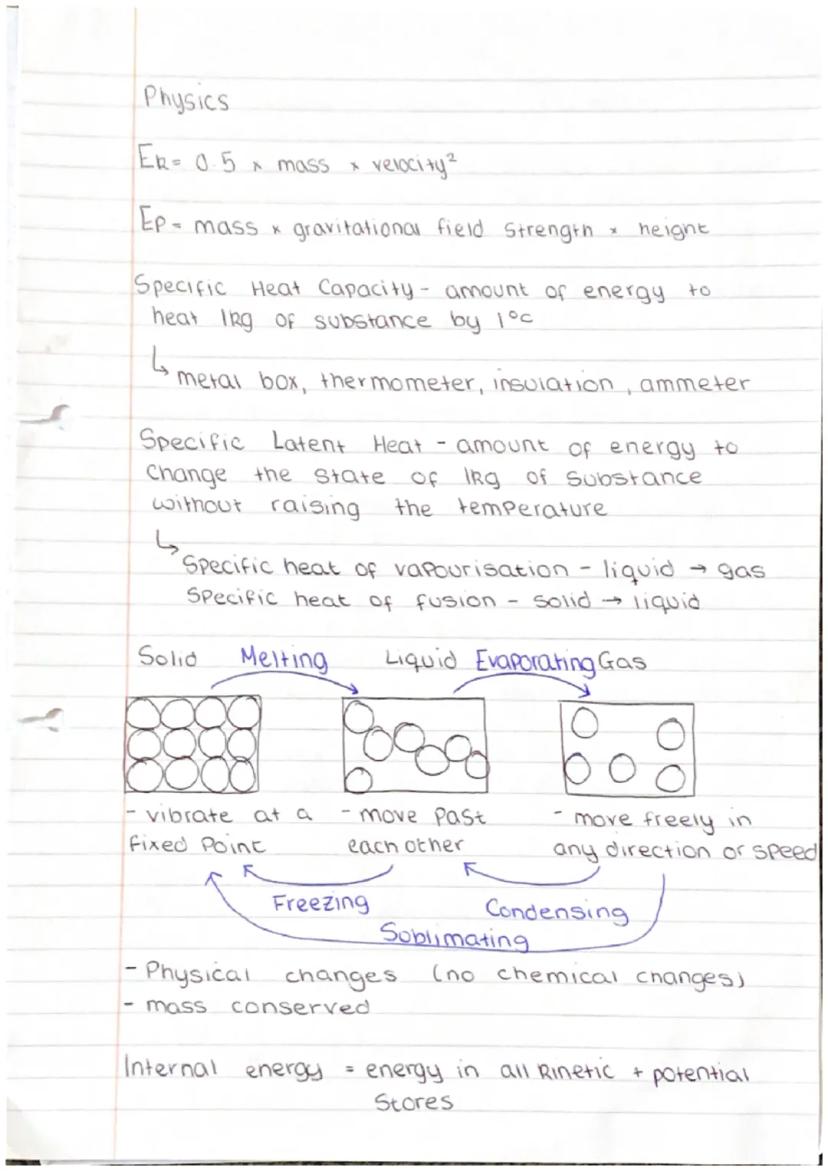 Physics
Ek= 0.5 × mass × velocity²
Ep = mass × gravitational field strength × height
Specific Heat Capacity - amount of energy to
heat 1kg of substance by 1°c
↳ metal box, thermometer, insulation, ammeter
Specific Latent Heat - amount of energy to
change the state of 1kg of substance
without raising the temperature
↳
Specific heat of vapourisation - liquid → gas
Specific heat of fusion - solid → liquid
Solid Melting Liquid Evaporating Gas
- vibrate at a
fixed point
- move past
each other
- move freely in
any direction or speed
Freezing
Condensing
Soblimating
- Physical changes (no chemical changes)
- mass conserved
Internal energy = energy in all kinetic + potential
stores